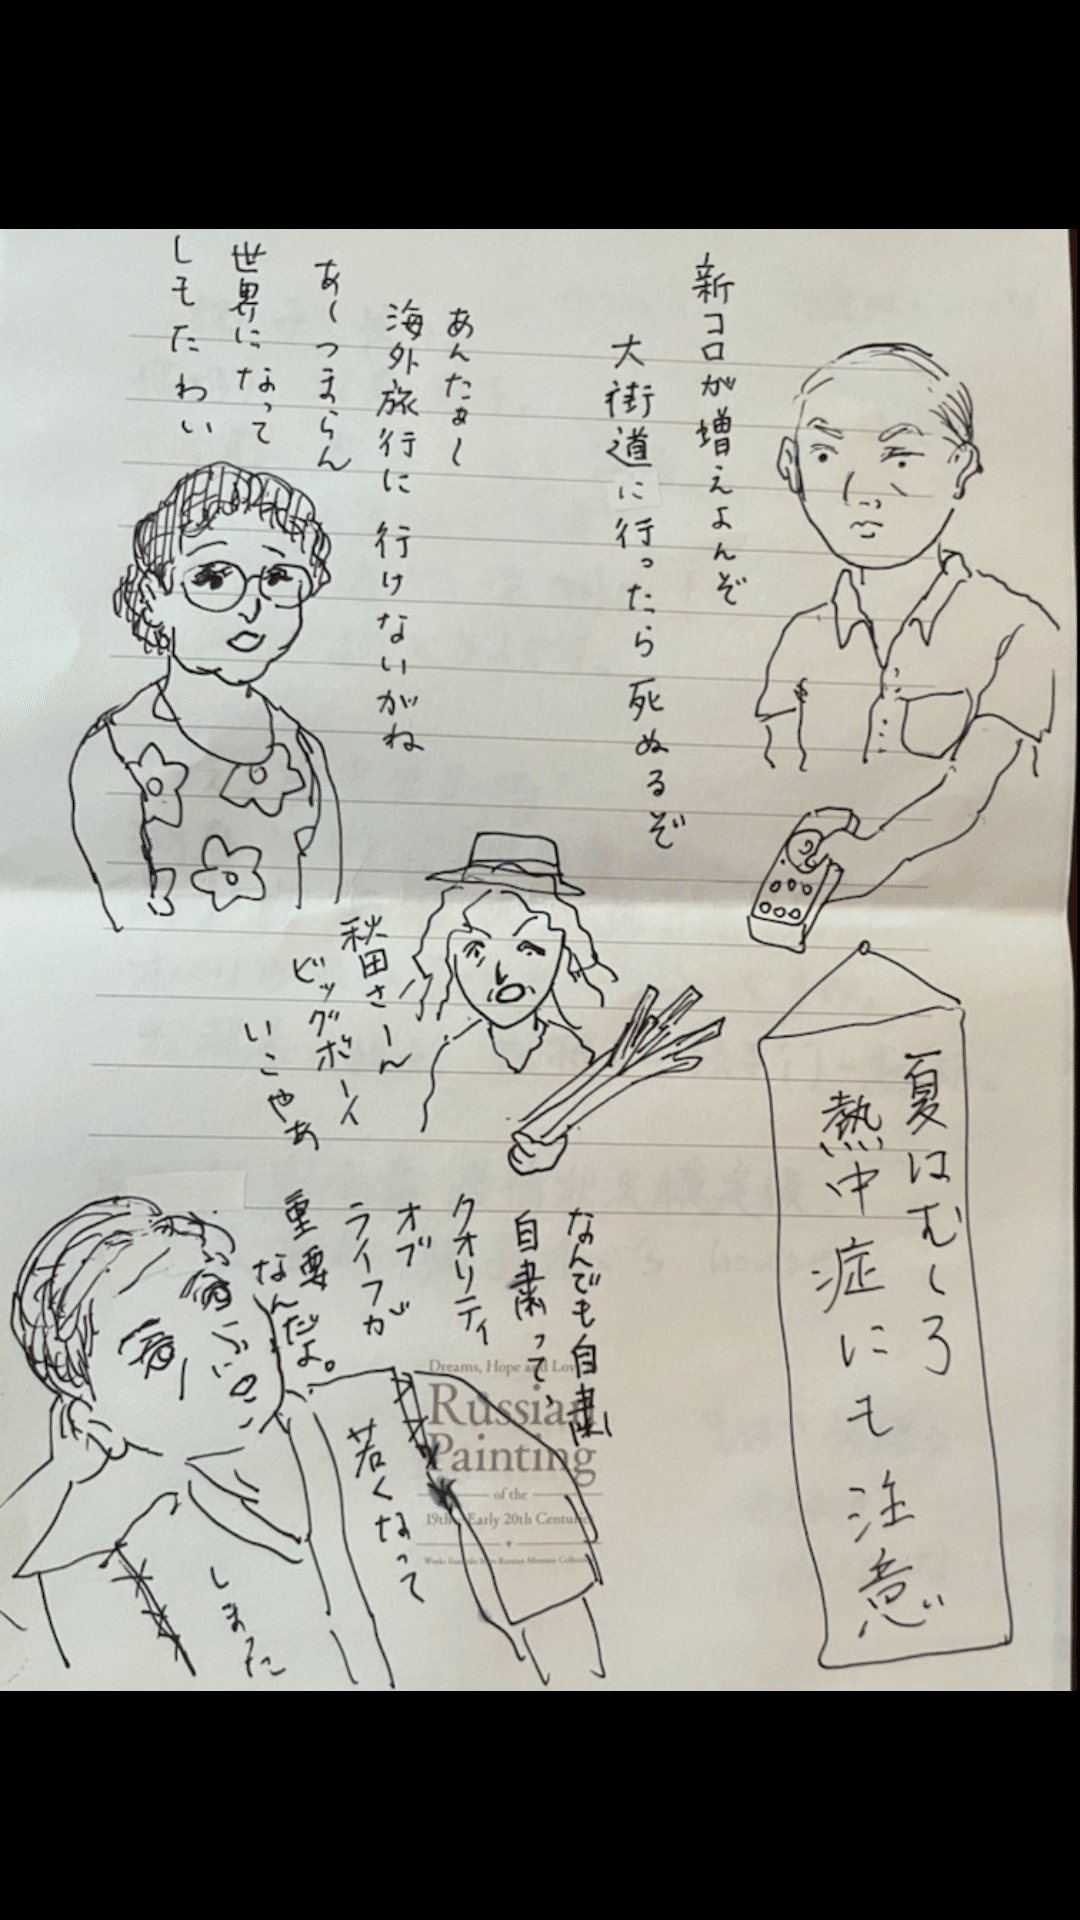 新コロが増えよんぞ
大街道に行ったら死ぬるぞ
あんたぁー
海外旅行に行けないがね
あーつまらん
世界になって
しもたわい
秋田さーん
ビッグボーイ
いこやぁ
夏はむしろ
熱中症にも注意
なんでも自粛
自粛って、
クオリティ
オブ
ライフが
重要
なんだよ。
若くなって
しまた
Dreams, Hope and Love
Russian
Painting
of the
19th - Early 20th Centuries